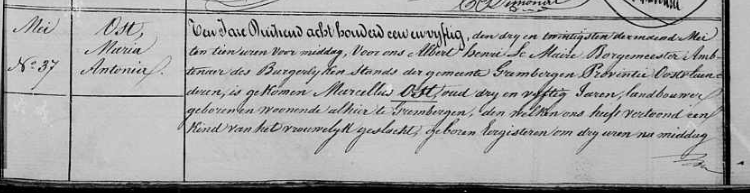 Mei
N.º 37
Ost,
Maria
Antonia.
Ten Jare Duizend acht honderd een en vyftig, den dry en twintigsten der maend Mei
ten tien uren voor middag, Voor ons Albert henri Le Maire Borgemeester Amb-
tenaer des Burgerlyken Stands der gemeente Grembergen Provintie Oostvlaen-
deren, is gekomen Marcellus Ost, oud dry en vyftig Jaren, landbouwer
geboren en woonende alhier te Grembergen, den welken ons heeft vertoond een
Kind van het vrouwelyk geslacht, geboren eergisteren om dry uren na middag